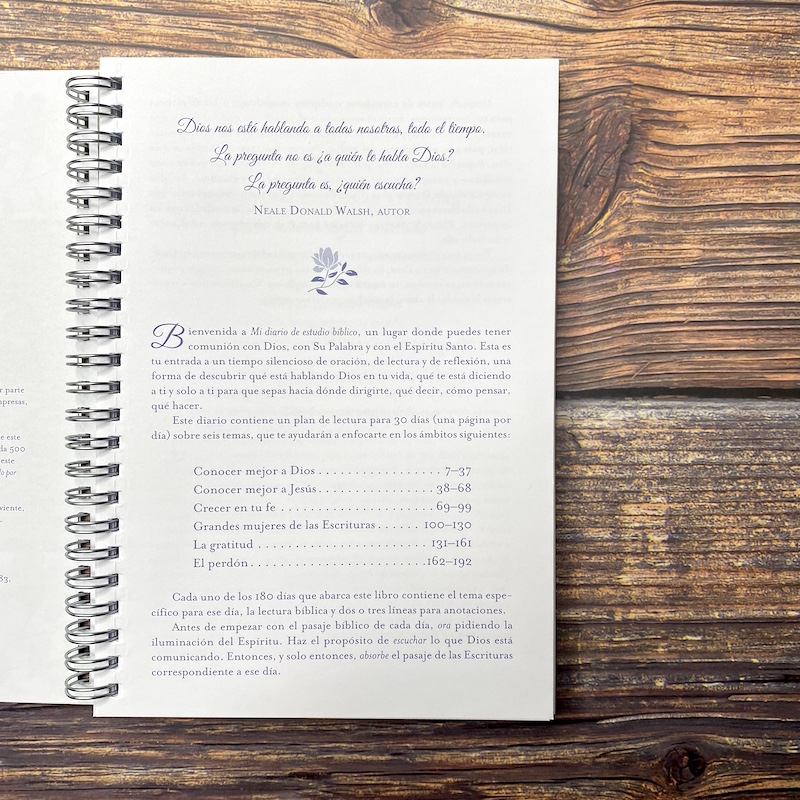 Dios nos está hablando a todas nosotras, todo el tiempo.
La pregunta no es ¿a quién le habla Dios?
La pregunta es, ¿quién escucha?
Neale Donald Walsh, autor
Bienvenida a Mi diario de estudio bíblico, un lugar donde puedes tener
comunión con Dios, con Su Palabra y con el Espíritu Santo. Esta es
tu entrada a un tiempo silencioso de oración, de lectura y de reflexión, una
forma de descubrir qué está hablando Dios en tu vida, qué te está diciendo
a ti y solo a ti para que sepas hacia dónde dirigirte, qué decir, cómo pensar,
qué hacer.
Este diario contiene un plan de lectura para 30 días (una página por
día) sobre seis temas, que te ayudarán a enfocarte en los ámbitos siguientes:
Conocer mejor a Dios . . . . . . . . . . . . . . . . . 7–37
Conocer mejor a Jesús . . . . . . . . . . . . . . . . 38–68
Crecer en tu fe . . . . . . . . . . . . . . . . . . . . . 69–99
Grandes mujeres de las Escrituras . . . . . . 100–130
La gratitud . . . . . . . . . . . . . . . . . . . . . . . 131–161
El perdón . . . . . . . . . . . . . . . . . . . . . . . .162–192
Cada uno de los 180 días que abarca este libro contiene el tema espe-
cífico para ese día, la lectura bíblica y dos o tres líneas para anotaciones.
Antes de empezar con el pasaje bíblico de cada día, ora pidiendo la
iluminación del Espíritu. Haz el propósito de escuchar lo que Dios está
comunicando. Entonces, y solo entonces, absorbe el pasaje de las Escrituras
correspondiente a ese día.
r parte
presas,
e este
da 500
este
do por
viente,
83,